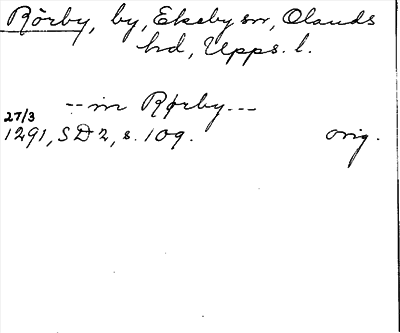 Rörby, by, Ekeby sn, Olands
hd, Upps. l.
-- in Rørby ---
27/3
1291, SD 2, s. 109. orig.